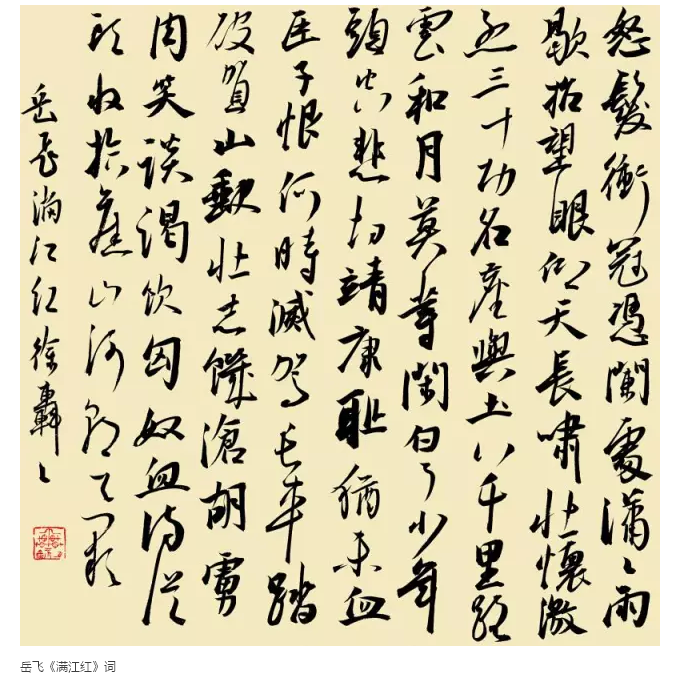 怒髮衝冠憑闌處瀟々雨
歇抬望眼仰天長嘯壯懷激
烈三十功名塵與土八千里路
雲和月莫等閑白了少年
頭空悲切靖康耻猶未血
臣子恨何時滅駕長車踏
破賀山壯志饑滄胡虜
肉笑談渴飲匈奴血待從
頭收拾舊山河朝天闕
岳飛滿江紅徐轟々
岳飞《满江红》词